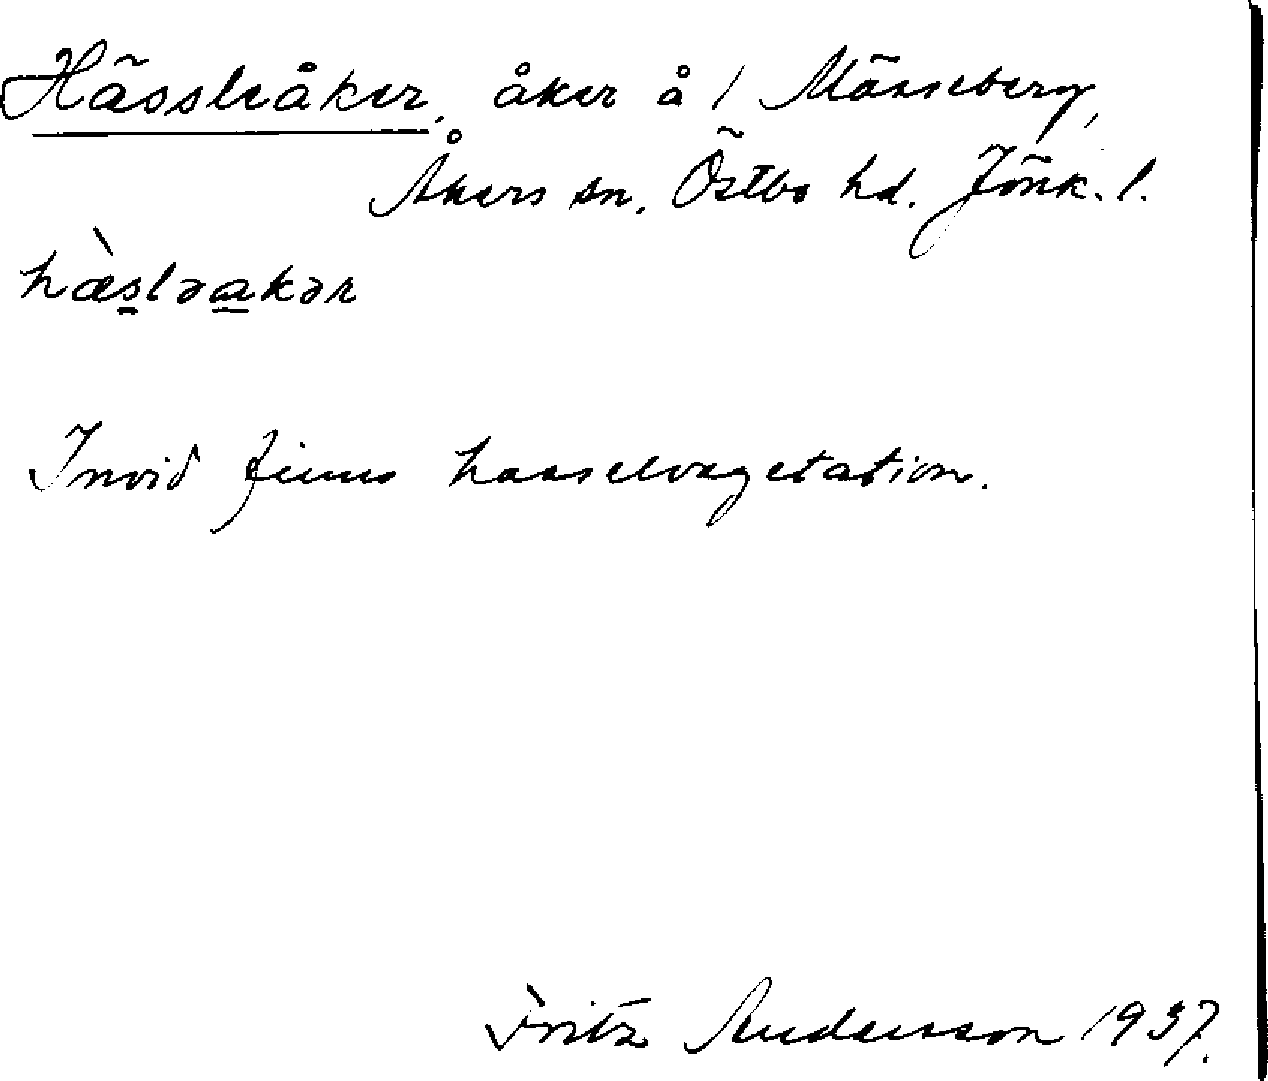 Hässleåker, åker å / Mässeberg,
Åkers sn. Östbo hd. Jönk. l.
hæ̀sləakər
Invid finns hasselvegetation.
Fritz Andersson 1937.